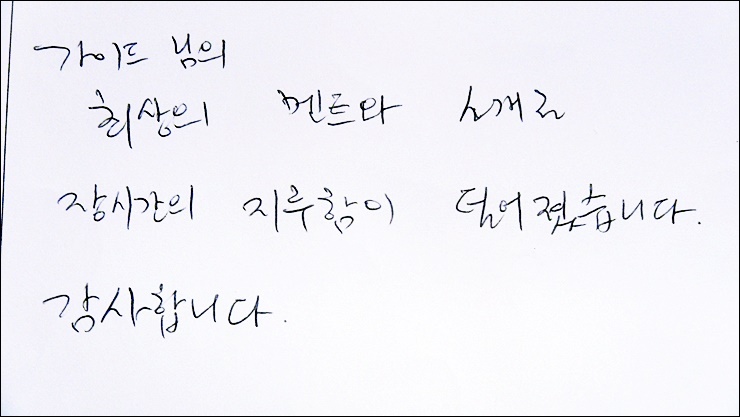 가이드 님의
최상의 멘트와 소개로
장시간의 지루함이 덜어졌습니다.
감사합니다.